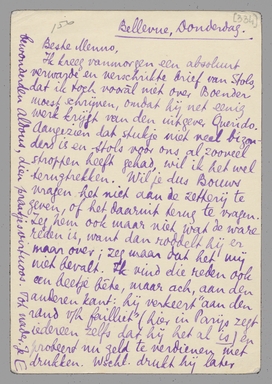 (334)
Bellevue, Donderdag.
Beste Menno,
Ik kreeg vanmorgen een absoluut
verwarde en verschrikte brief van Stols,
dat ik toch vooral niet over Boender
moest schrijven, omdat hij net eenig
werk krijgt van den uitgever Querido.
Aangezien dat stukje niet veel bizon-
ders is en Stols voor ons al zooveel
stroppen heeft gehad, wil ik het wel
terugtrekken. Wil je dus Bouws
vragen het niet aan de zetterij te
geven, of het daaruit terug te vragen.
Zeg hem ook maar niet wat de ware
reden is, want dan roddelt hij er
maar over; zeg maar dat het mij
niet bevalt. Ik vind die reden ook
een beetje bête, maar ach, aan den
anderen kant: hij verkeert "aan den
rand v/h failliet" (hier in Parijs zegt
iedereen zelfs dat hij het al is) en
probeert nu geld te verdienen met
drukken. Wscht. drukt hij later
bewonderden albums, dien